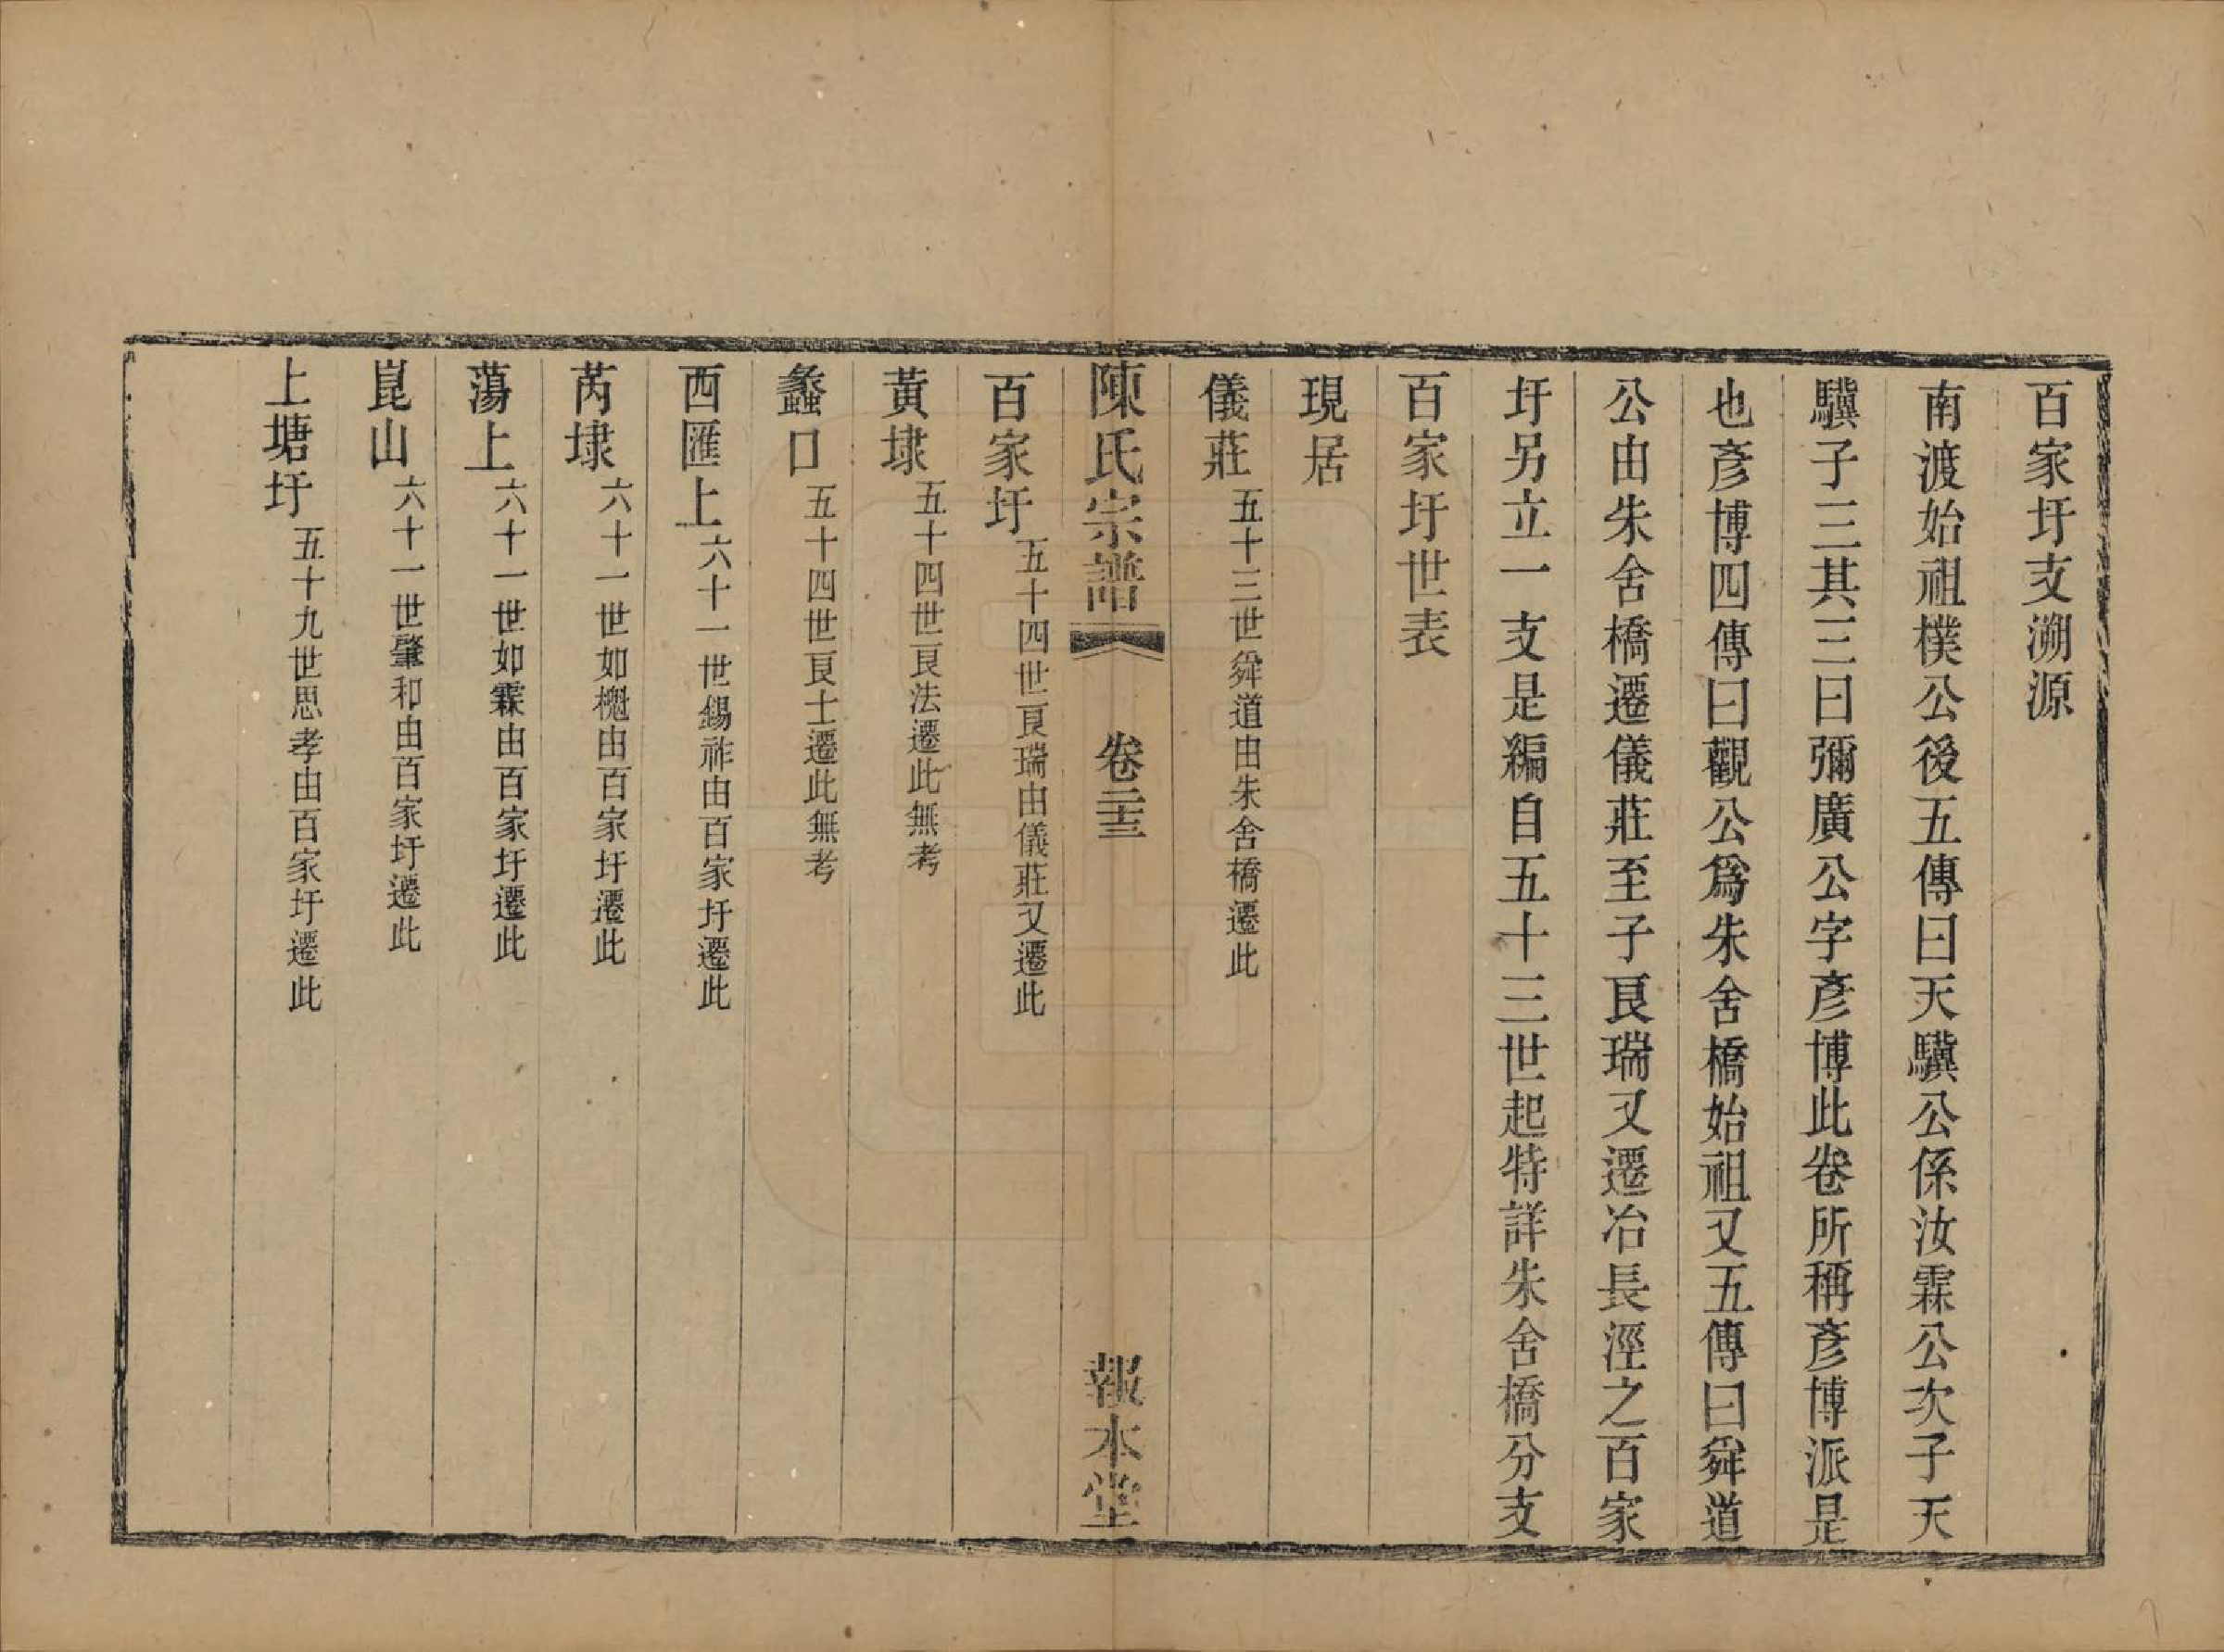 百家圩支溯源
南渡始祖樸公後五傳曰天驥公係汝霖公次子天
驥子三其三曰彌廣公字彥博此卷所稱彥博派是
也彥博四傳曰觀公爲朱舍橋始祖又五傳曰舜道
公由朱舍橋遷儀莊至子良瑞又遷冶長涇之百家
圩另立一支是編自五十三世起特詳朱舍橋分支
百家圩世表
現居
儀莊五十三世舜道由朱舍橋遷此
陳氏宗譜 卷二十三 報本堂
百家圩五十四世良瑞由儀莊又遷此
黃埭五十四世良法遷此無考
蠡口五十四世良士遷此無考
西匯上六十一世錫祚由百家圩遷此
芮埭六十一世如槐由百家圩遷此
蕩上六十一世如霖由百家圩遷此
崑山六十一世肇和由百家圩遷此
上塘圩五十九世思孝由百家圩遷此